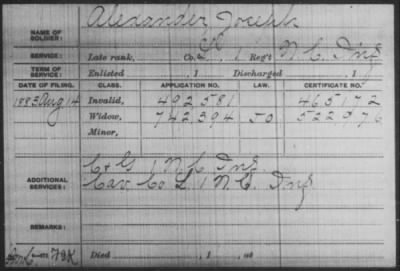 NAME OF SOLDIER: Alexander Joseph
SERVICE: Late rank, Co. Reg't N.C. Inf
TERM OF SERVICE: Enlisted , 1 Discharged , 1
DATE OF FILING. CLASS. APPLICATION NO. LAW. CERTIFICATE NO.
1883 Aug 14 Invalid, 492581 465172
Widow, 742394 522976
Minor,
ADDITIONAL SERVICES: C & G 1 N.C. Inf.
Cav. Co L 1 N.C. Inf
REMARKS:
Died , 1 , at